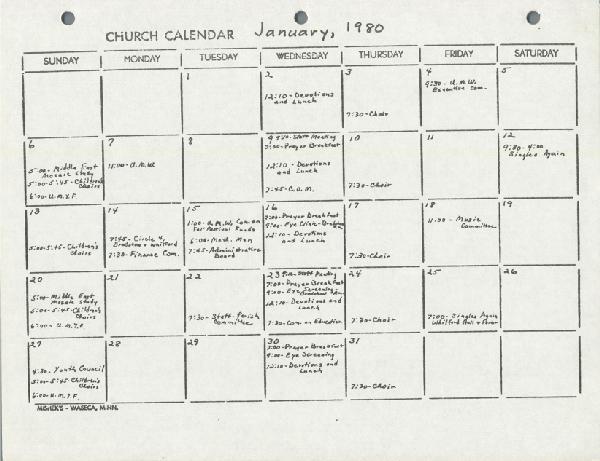 CHURCH CALENDAR January, 1980
SUNDAY MONDAY TUESDAY WEDNESDAY THURSDAY FRIDAY SATURDAY
1
2
12:10 - Devotions
and Lunch
3
7:30 - Choir
4
9:30 - U.M.W.
Executive Com.
5
6
5:00 - Middle East
Mosaic Study
5:00-5:45 - Children's
Choirs
6:00 - U.M.Y.F.
7
8
9
Staff Meeting
7:00 - Prayer Breakfast
12:10 - Devotions
and Lunch
7:45 - C.O.M.
10
7:30 - Choir
11
12
9:30 - 4:00
Singles Again
13
5:00-5:45 - Children's
Choirs
14
7:45 - Circle 4,
7:30 - Finance Com.
15
6:00 - Meth. Men
7:45 - Administrative
Board
16
7:00 - Prayer Breakfast
9:00 - Eye Clinic
12:10 - Devotions
and Lunch
17
7:30 - Choir
18
11:30 - Music
Committee
19
20
5:00 - Middle East
Mosaic Study
5:00-5:45 - Children's
Choirs
6:00 - U.M.Y.F.
21
22
7:30 - Staff-Parish
Committee
23
7:00 - Prayer Breakfast
9:00 - Eye Screening
12:10 - Devotions and
Lunch
7:30 - Com. on Education
24
7:30 - Choir
25
7:00 - Singles Again
26
27
4:30 - Youth Council
5:00-5:45 Children's
Choirs
6:00 - U.M.Y.F.
28
29
30
7:00 - Prayer Breakfast
9:00 - Eye Screening
12:10 - Devotions and
Lunch
31
7:30 - Choir
MISHEK'S - WASECA, MINN.